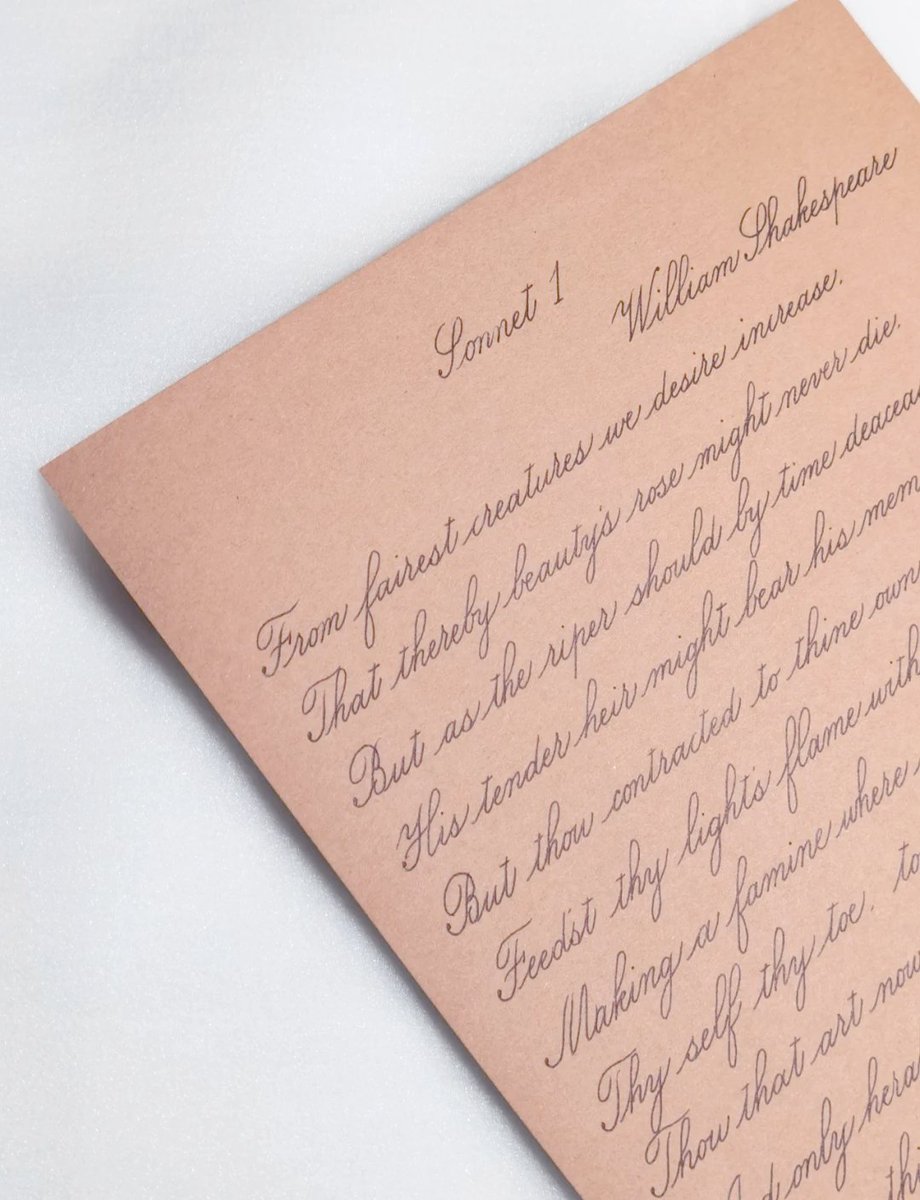 Sonnet 1
William Shakespeare
From fairest creatures we desire increase.
That thereby beauty's rose might never die.
But as the riper should by time deacea
His tender heir might bear his mem
But thou contracted to thine own
Feed'st thy light's flame with
Making a famine where
Thy self thy toe. to
Thou that art now
only hera
thi